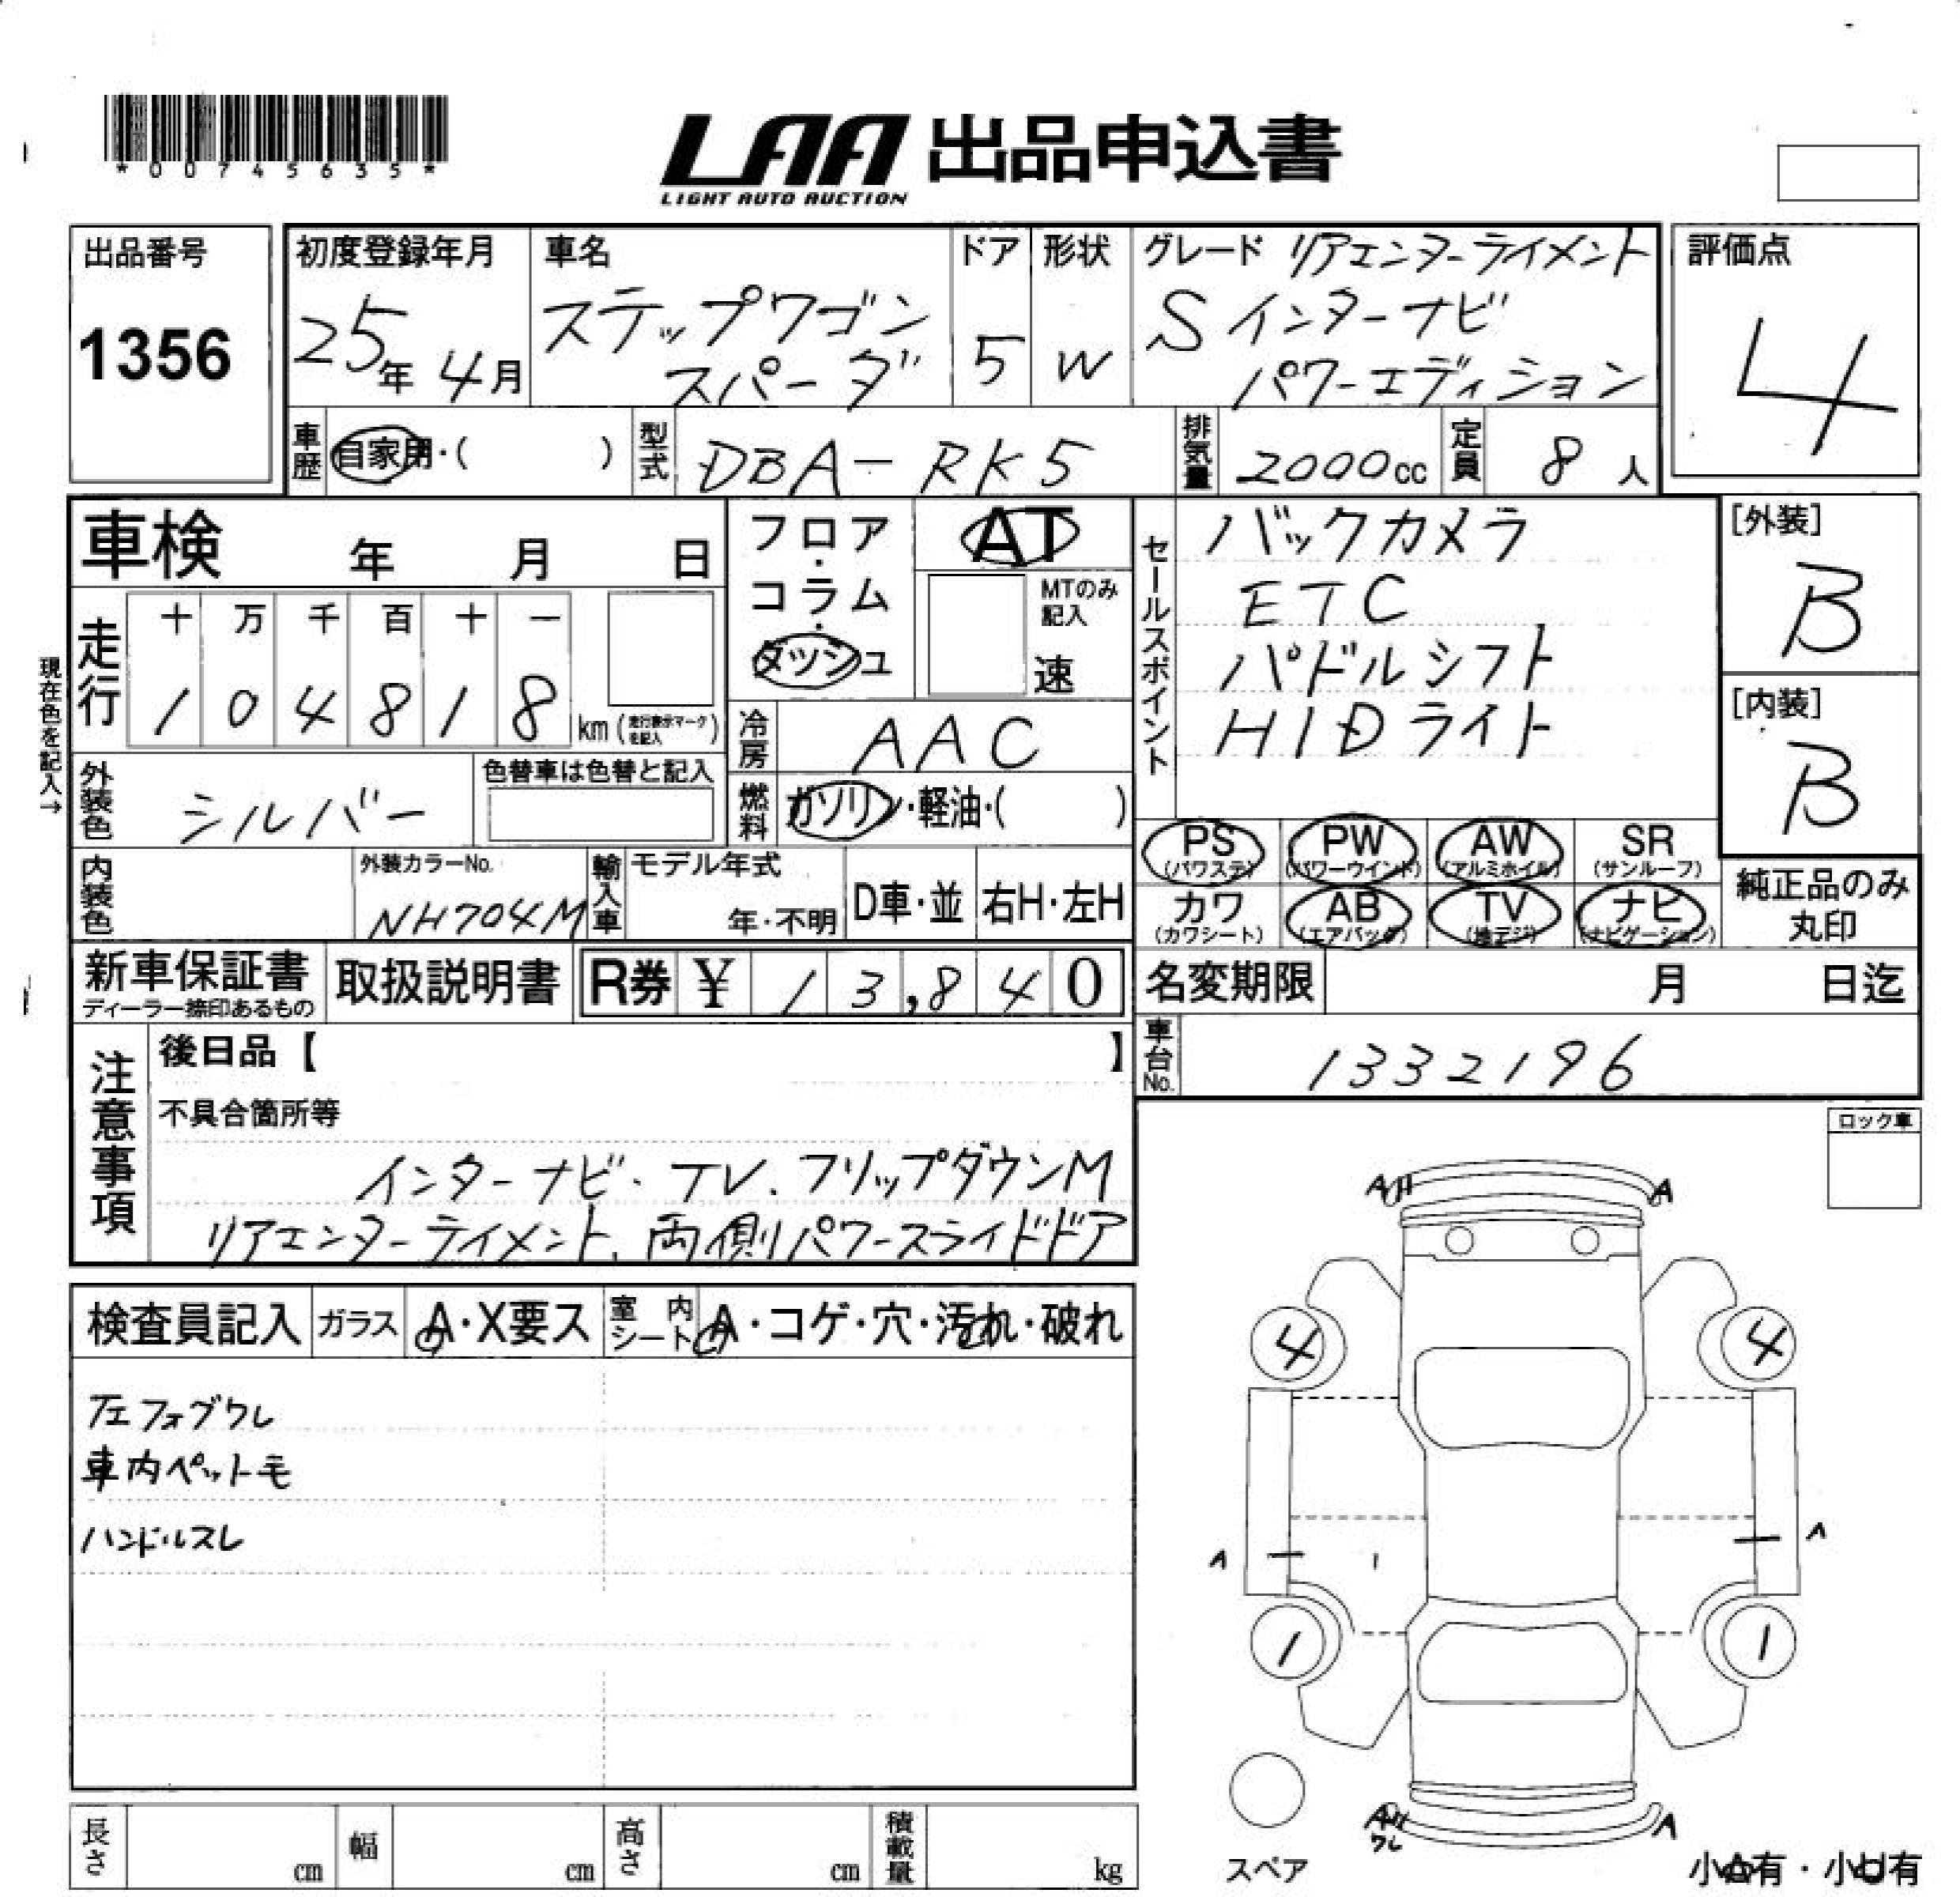 *00745635*
LAA 出品申込書
LIGHT AUTO AUCTION
出品番号
1356
初度登録年月
25年 4月
車名
ステップワゴン
スパーダ
ドア
5
形状
W
グレード リアエンターテイメント
S インターナビ
パワーエディション
評価点
4
車歴
自家用・( )
型式
DBA-RK5
排気量
2000cc
定員
8 人
車検 年 月 日
フロア・コラム・ダッシュ
AT
MTのみ記入
速
セールスポイント
バックカメラ
ETC
パドルシフト
HIDライト
[外装]
B
[内装]
B
現在色を記入→
走行
十 万 千 百 十 一
1 0 4 8 1 8
km (走行表示マークを記入)
冷房
AAC
外装色
シルバー
色替車は色替と記入
燃料
ガソリン・軽油・( )
PS (パワステ)
PW (パワーウインド)
AW (アルミホイル)
SR (サンルーフ)
カワ (カワシート)
AB (エアバッグ)
TV (地デジ)
ナビ (ナビゲーション)
純正品のみ
丸印
内装色
外装カラーNo.
NH704M
輸入車
モデル年式
年・不明
D車・並
右H・左H
新車保証書
ディーラー捺印あるもの
取扱説明書
R券 ¥ 13,840
名変期限 月 日迄
車台No.
1332196
注意事項
後日品【 】
不具合箇所等
インターナビ・TV.フリップダウンM
リアエンターテイメント、両側パワースライドドア
ロック車
検査員記入
ガラス
A・X要ス
室内シート
A・コゲ・穴・汚れ・破れ
左フォグワレ
車内ペット毛
ハンドルスレ
A
A
4
4
A
A
1
1
A
ワレ
A
スペア
小A有・小U有
長さ cm
幅 cm
高さ cm
積載量 kg